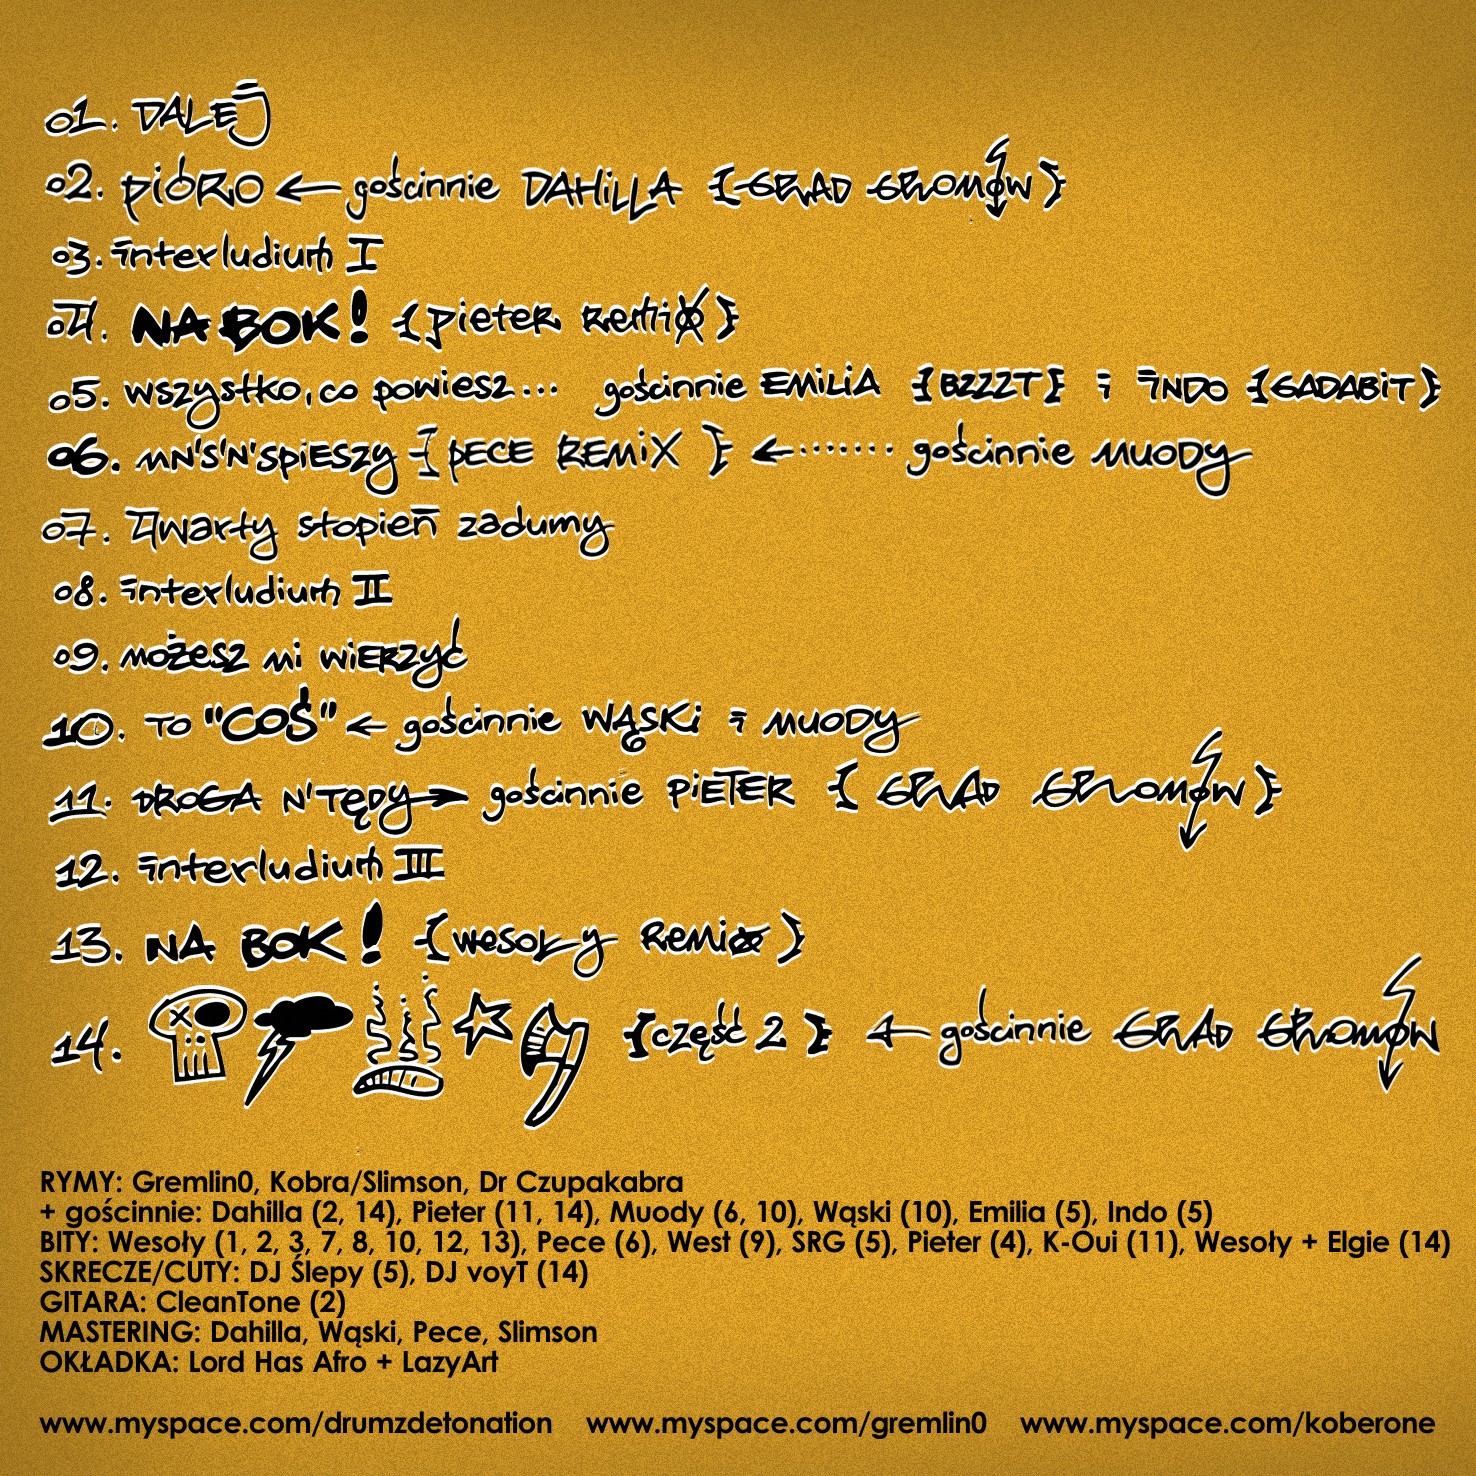 01. DALEJ
02. PIÓRO ← gościnnie DAHILLA {GRAD GROMÓW}
03. interludium I
04. NA BOK! {pieter remix}
05. wszystko, co powiesz... gościnnie EMILIA {BZZZT} i INDO {GADABIT}
06. MN'S'N'SPIESZY {PECE REMIX} ←······· gościnnie MUODY
07. 4warty stopień zadumy
08. interludium II
09. możesz mi wierzyć
10. TO "COŚ" ← gościnnie WĄSKI i MUODY
11. DROGA N'TĘDY → gościnnie PIETER {GRAD GROMÓW}
12. interludium III
13. NA BOK! {wesoły Remix}
14. {część 2} ← gościnnie GRAD GROMÓW
RYMY: Gremlin0, Kobra/Slimson, Dr Czupakabra
+ gościnnie: Dahilla (2, 14), Pieter (11, 14), Muody (6, 10), Wąski (10), Emilia (5), Indo (5)
BITY: Wesoły (1, 2, 3, 7, 8, 10, 12, 13), Pece (6), West (9), SRG (5), Pieter (4), K-Oui (11), Wesoły + Elgie (14)
SKRECZE/CUTY: DJ Ślepy (5), DJ voyT (14)
GITARA: CleanTone (2)
MASTERING: Dahilla, Wąski, Pece, Slimson
OKŁADKA: Lord Has Afro + LazyArt
www.myspace.com/drumzdetonation www.myspace.com/gremlin0 www.myspace.com/koberone